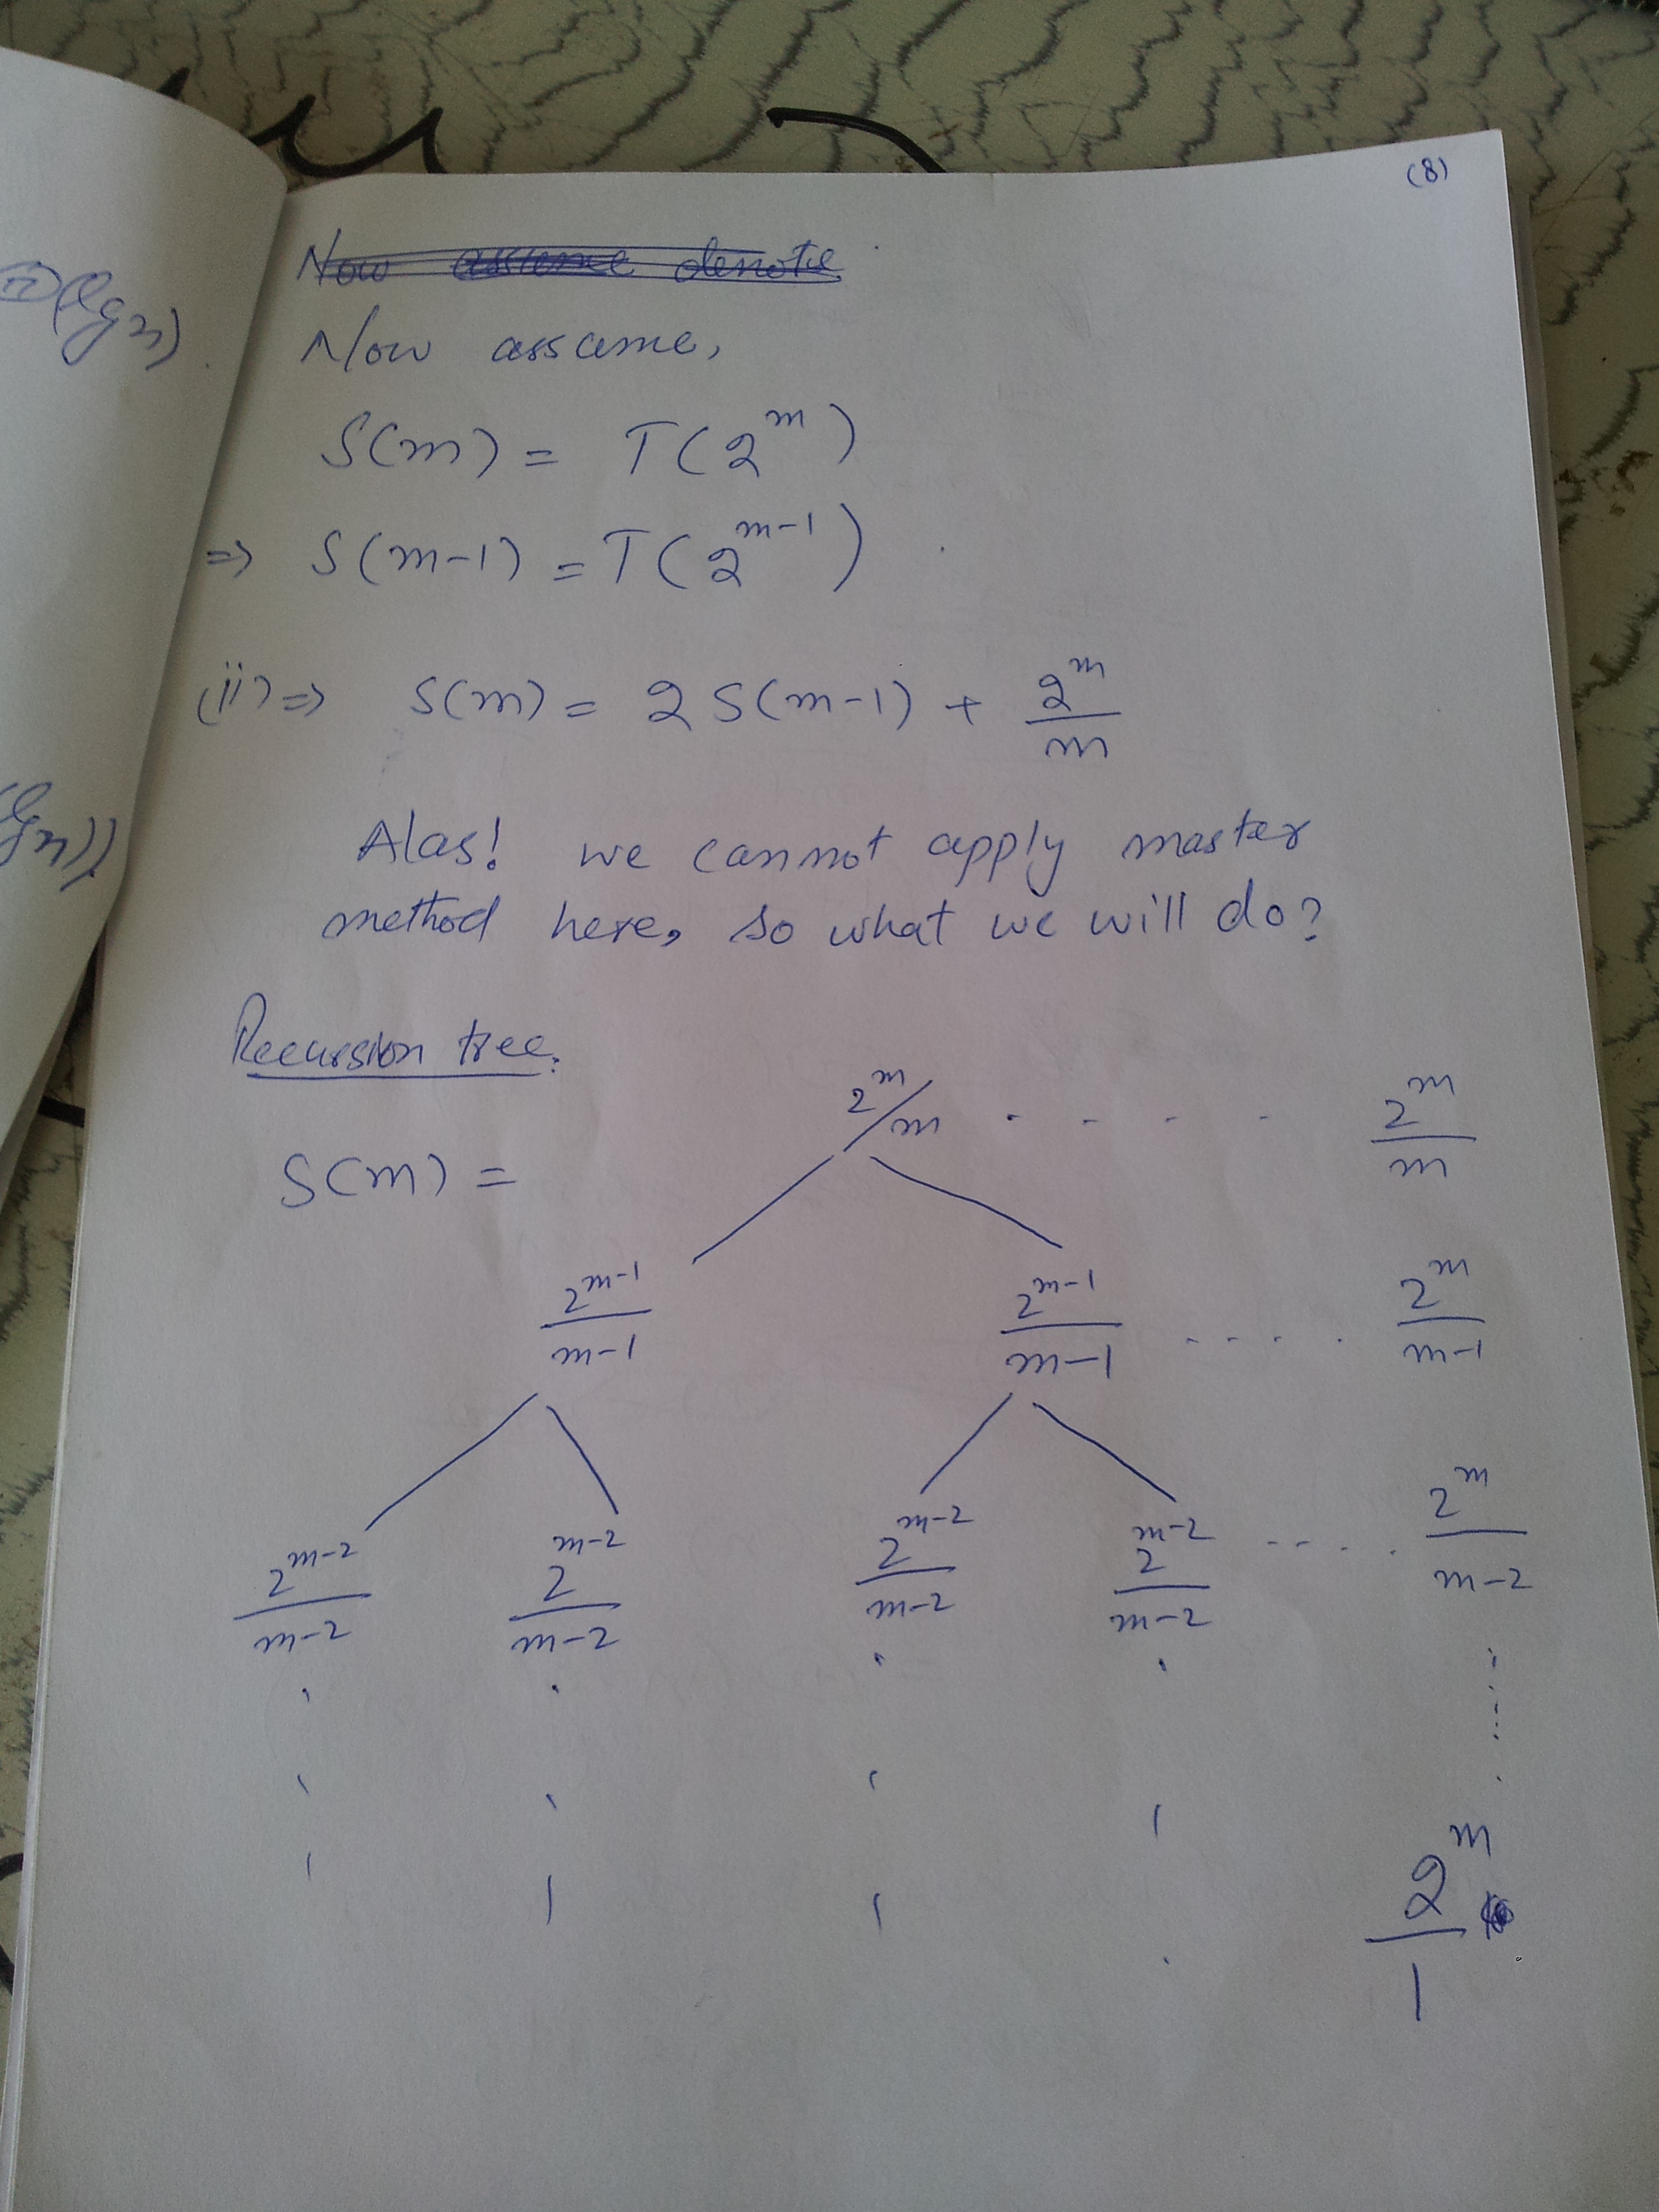 (8)
Now assume denote
Now assume,
S(m) = T(2^m)
=> S(m-1) = T(2^{m-1})
(ii) => S(m) = 2S(m-1) + 2^m/m
Alas! we cannot apply master
method here, so what we will do?
Recursion tree:
S(m) =
2^m/m . - - . 2^m/m
2^{m-1}/m-1 2^{m-1}/m-1 - - . . 2^m/m-1
2^{m-2}/m-2 2^{m-2}/m-2 2^{m-2}/m-2 2^{m-2}/m-2 - - . . 2^m/m-2
2^m/1
lgn)
lgn))